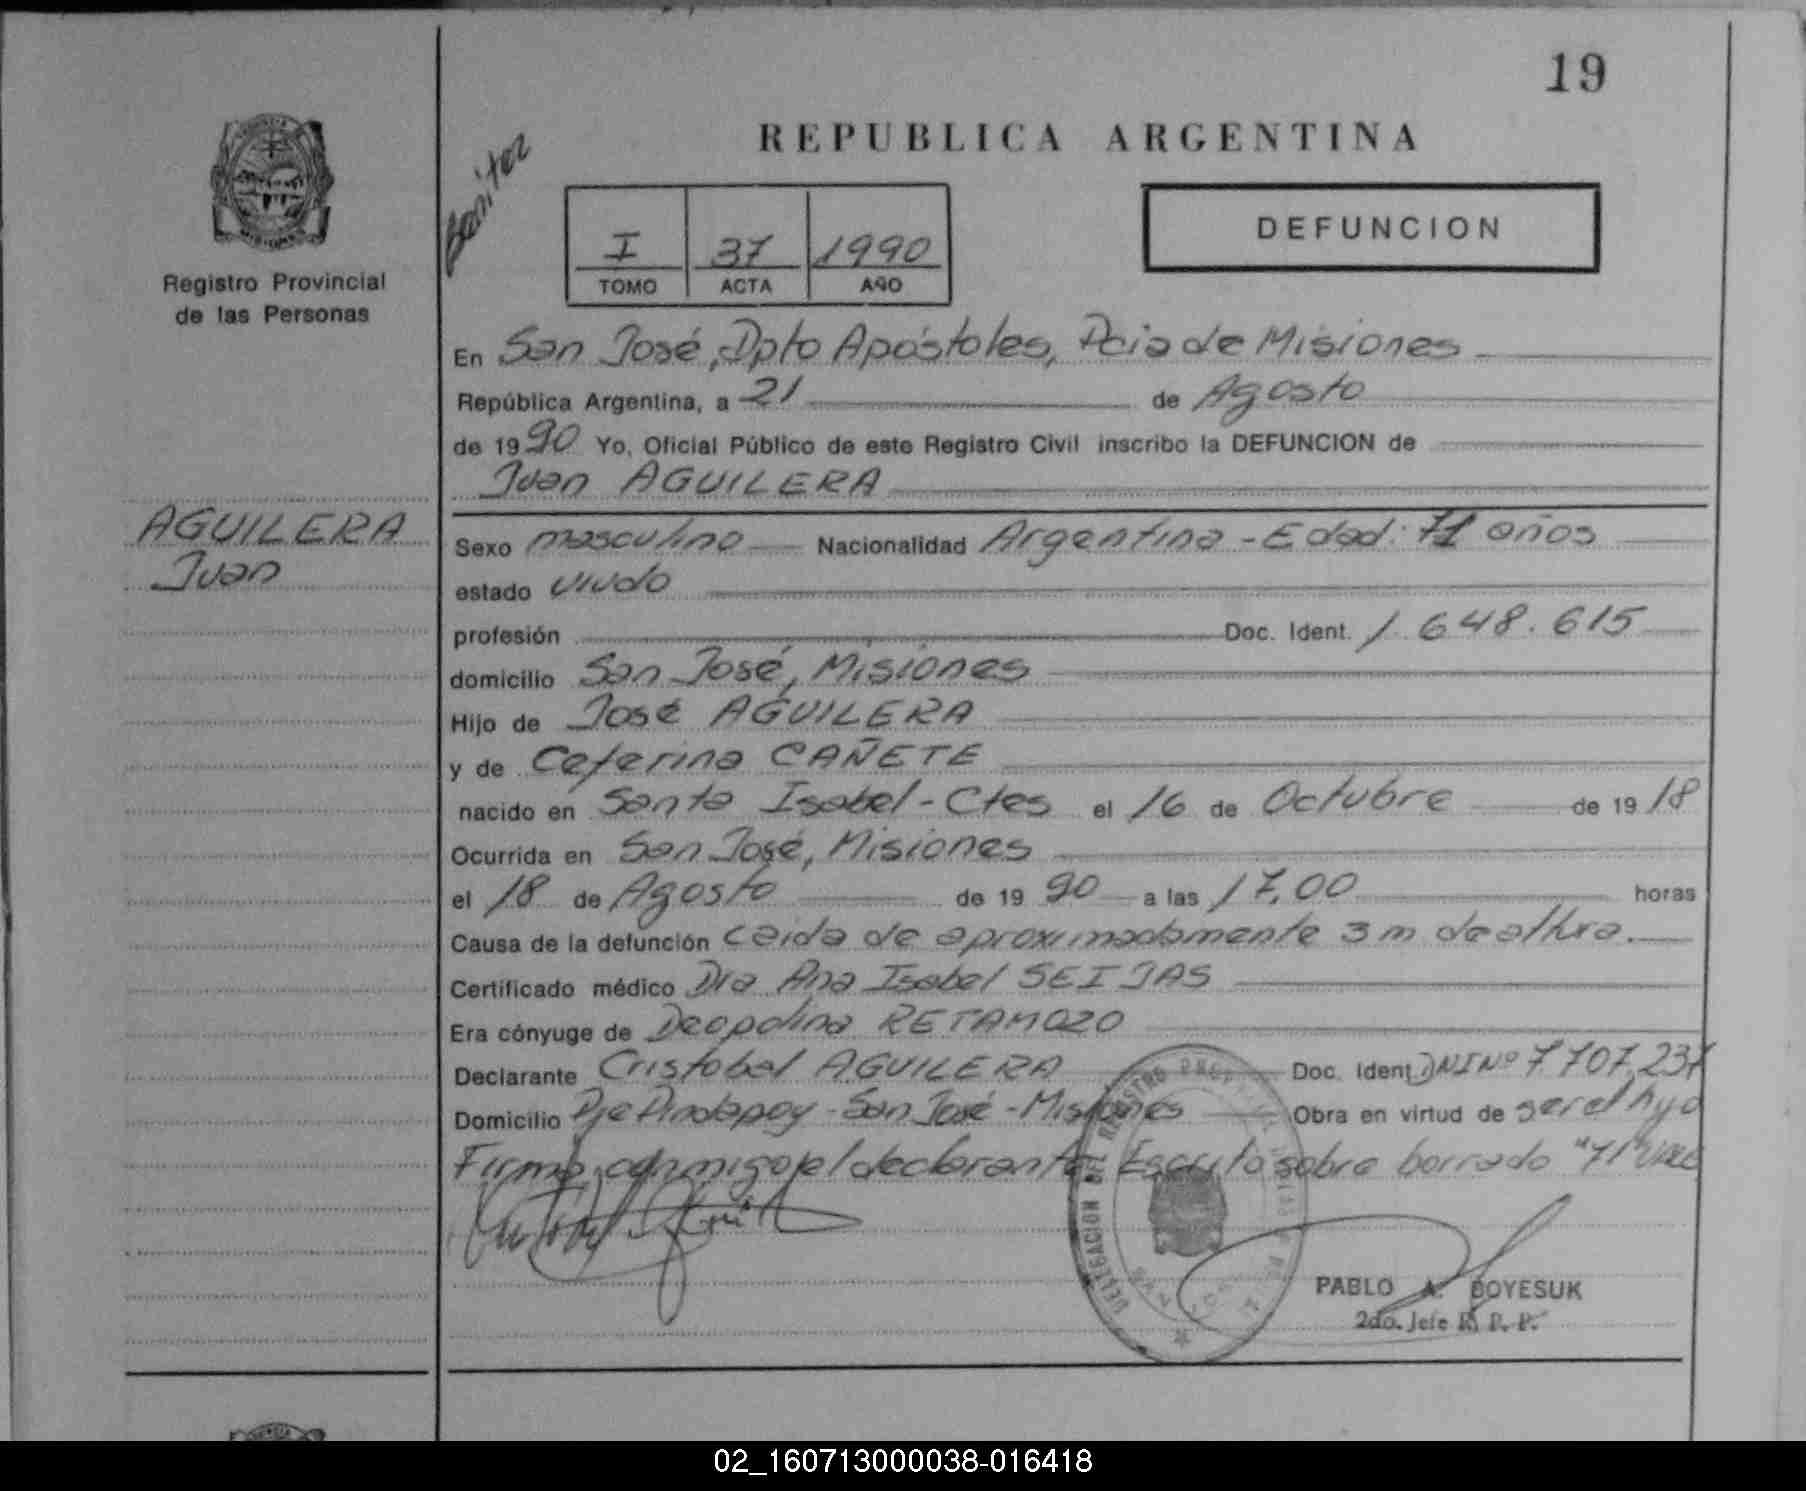 19
REPUBLICA ARGENTINA
Benitez
Registro Provincial
de las Personas
I 37 1990
TOMO ACTA AÑO
DEFUNCION
En San José, Dpto Apóstoles, Pcia de Misiones
República Argentina, a 21 de Agosto
de 1990 Yo, Oficial Público de este Registro Civil inscribo la DEFUNCION de
Juan AGUILERA
AGUILERA
Juan
Sexo masculino Nacionalidad Argentina - Edad: 71 años
estado viudo
profesión Doc. Ident. 1.648.615
domicilio San José, Misiones
Hijo de José AGUILERA
y de Ceferina CAÑETE
nacido en Santa Isabel - Ctes el 16 de Octubre de 1918
Ocurrida en San José, Misiones
el 18 de Agosto de 1990 a las 17,00 horas
Causa de la defunción caida de aproximadamente 3 m de altura.
Certificado médico Dra Ana Isabel SEIJAS
Era cónyuge de Deopolina RETAMOZO
Declarante Cristobal AGUILERA Doc. Ident DNI Nº 7.707.237
Domicilio Pje Pindapoy - San José - Misiones Obra en virtud de ser el hijo
Firma conmigo el declarante Escrito sobre borrado "71" vale
DELEGACION DEL REGISTRO
PABLO A. BOYESUK
2do. Jefe R. P. P.
02_160713000038-016418